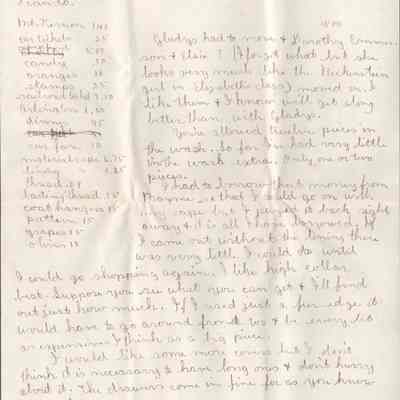 Mt. Vernon
car tickets 25
candy
oranges
stamps 25
railroad
Arlington
dinner 45
car fare 10
material cape
lining
thread
basting thread
coat hangers 15
pattern 15
grapes 15
olives 10
Gladys had to move & Dorothy
son & Elsie ? (I forget what but she
looks very much like the
girl in Elizabeth's class) moved in. I
like them & I know will get along
better than with Gladys.
You're allowed twelve pieces in
the wash. So far I've had very little
in the wash extra. Only one or two
pieces.
I had to borrow that money from
so that I could go on with
my cape but I paid it back right
away & it is all I have borrowed. If
I came out without the lining there
was very little I could do until
I could go shopping again. I like high collar
best. Suppose you see what you can get & I'll find
out just how much. If I used just a fur edge it
would have to go around front too & be every bit
as expensive I think as a big piece.
I would like some more but I don't
think it is necessary to have long ones & don't hurry
about it. The drawers come in fine for as you know